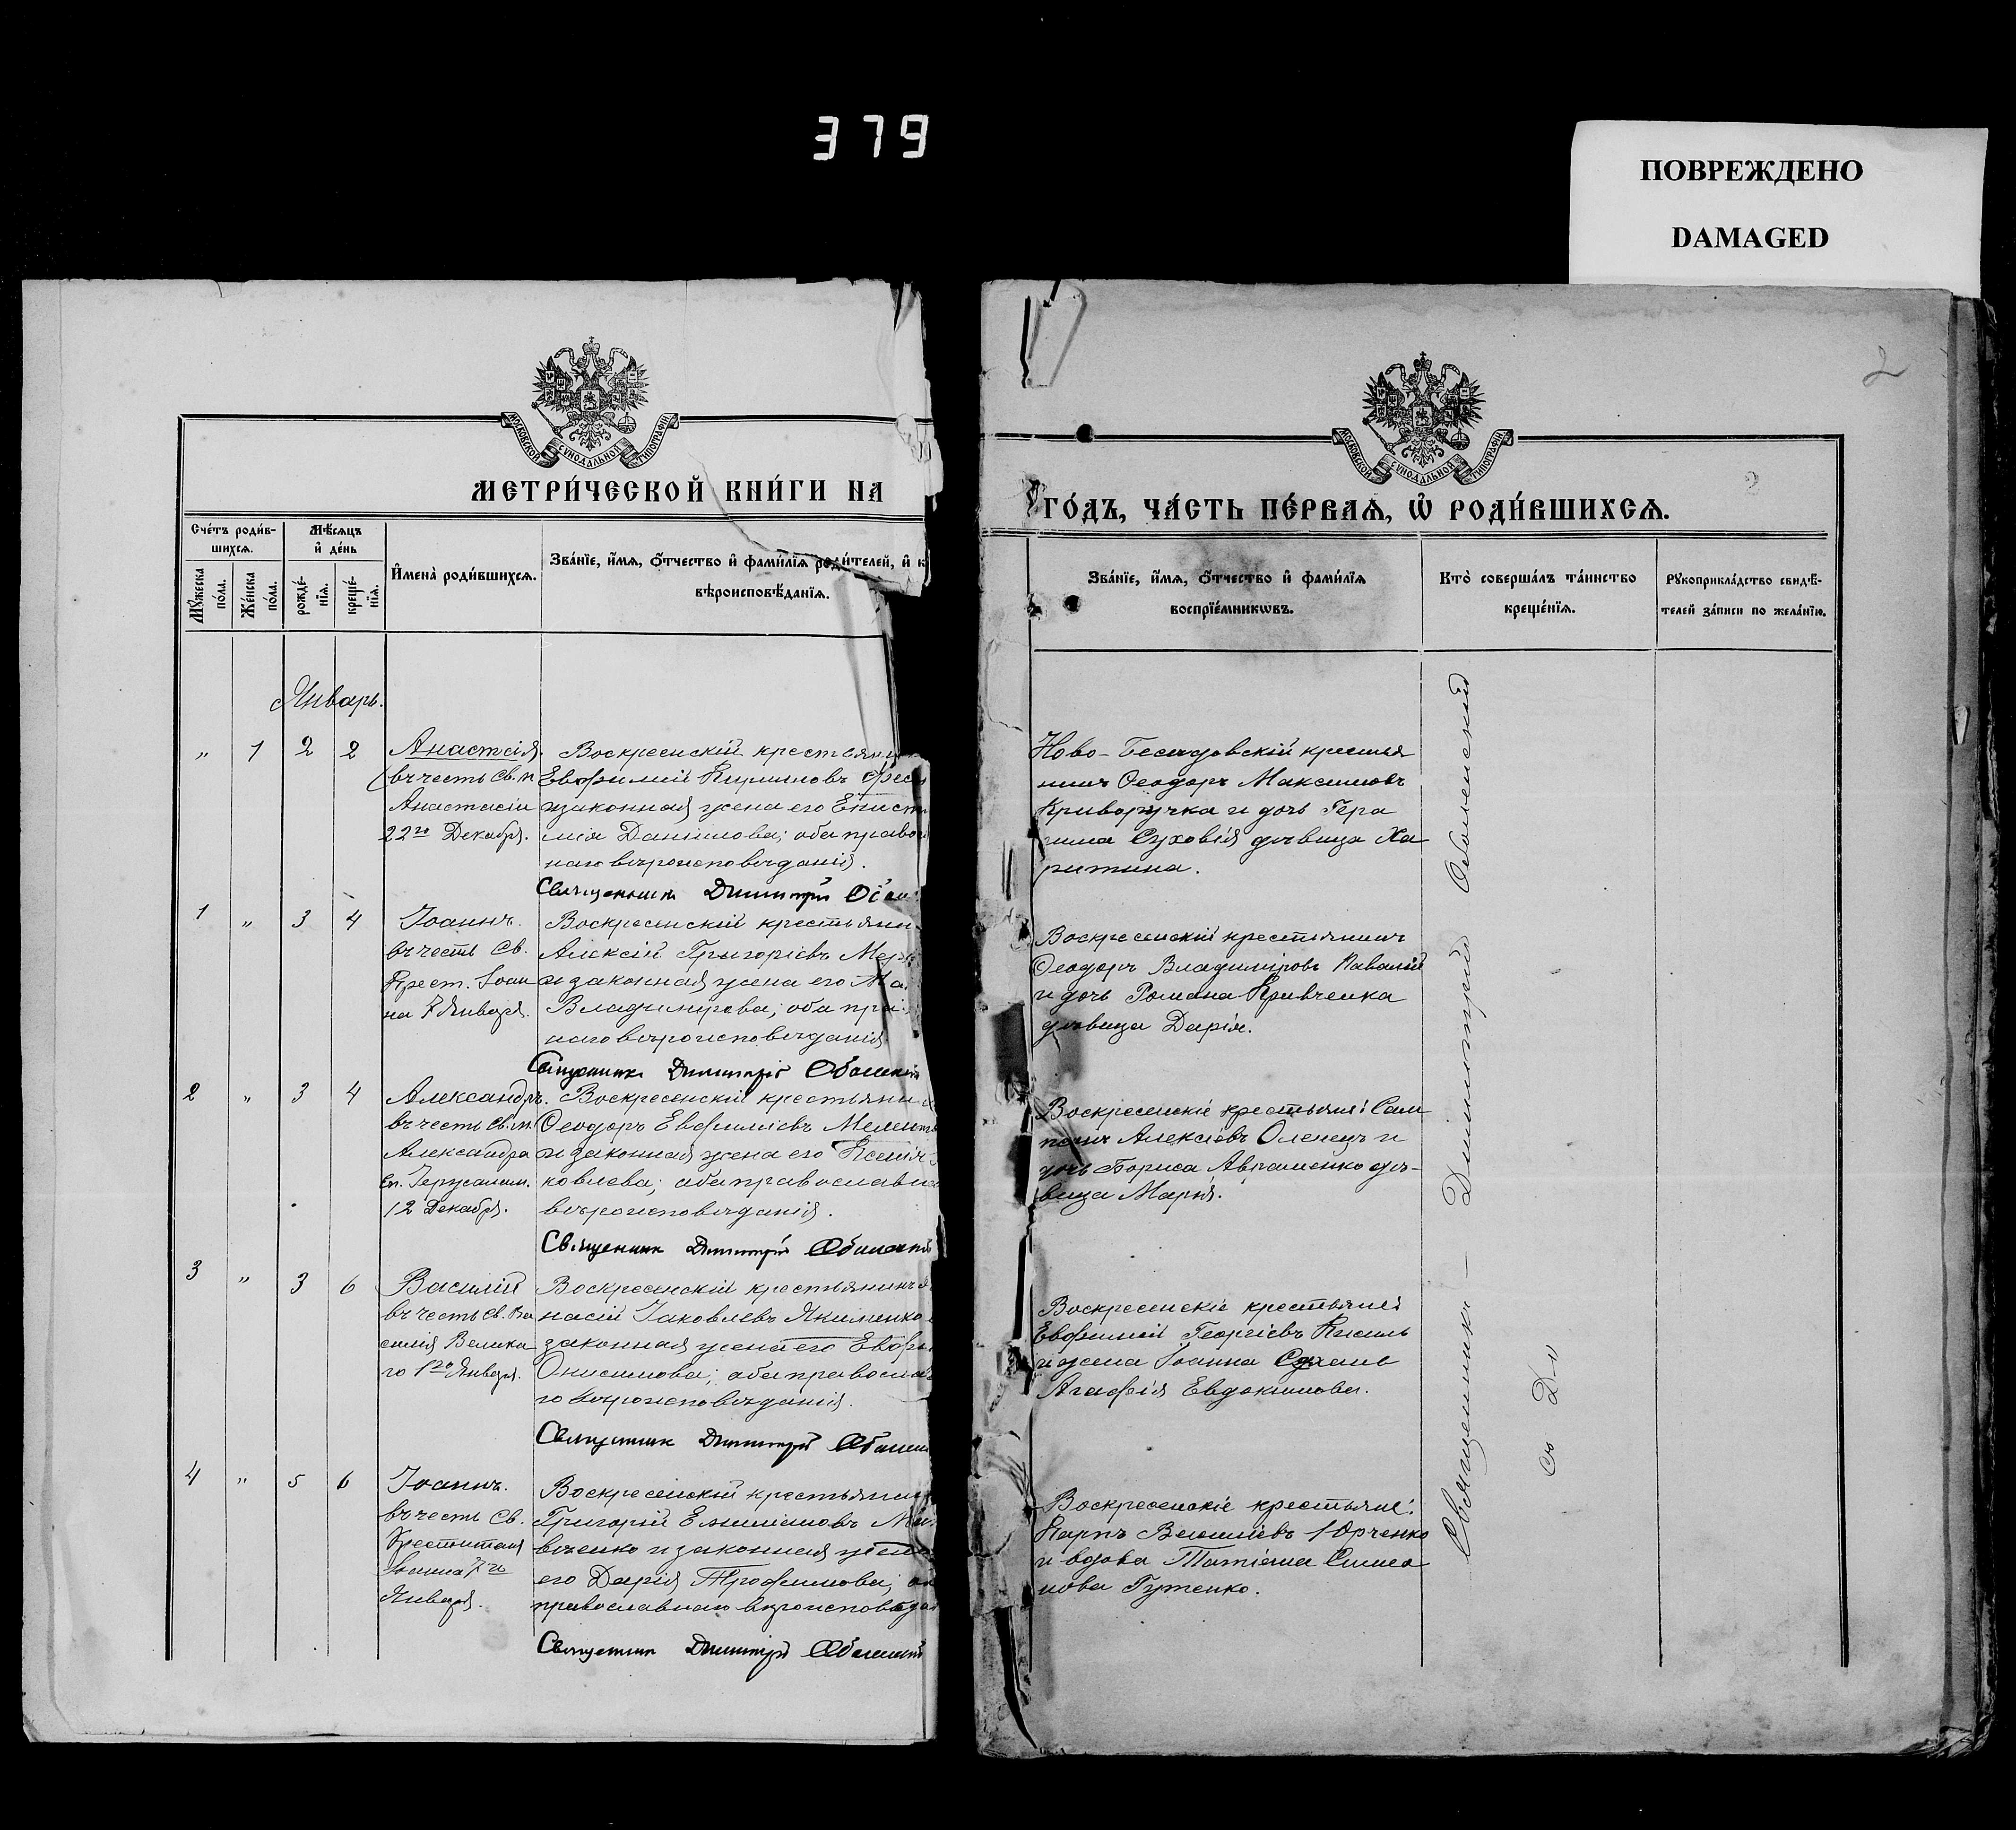 379
ПОВРЕЖДЕНО
DAMAGED
2
МОСКОВСКОЙ СУНОДАЛЬНОЙ ТИПОГРАФІИ
МЕТРИ́ЧЕСКОЙ КНИ́ГИ НА
Сче́тъ роди́в-
шихсѧ.
Мѣ́сѧцъ
и҆ де́нь
Мꙋ́жеска
по́ла.
Же́нска
по́ла.
рожде́-
нїѧ.
креще́-
нїѧ.
И҆мена̀ роди́вшихсѧ.
Зва́нїе, и҆́мѧ, ѻ҆́тчество и҆ фами́лїѧ роди́телей, и҆ к
вѣроисповѣ́данїѧ.
Январь.
„ 1 2 2
Анастасія.
въ честь Св. м
Анастасіи
22го Декабря.
Воскресенскій крестьянин
Евфимій
и законная жена его
Даніилова; оба право
наго вѣроисповѣданія.
Священникъ Димитрій
1 „ 3 4
Іоаннъ.
въ честь Св.
Крест. Іоан
на 7 Января.
Воскресенскій крестьянин
Алексій Григоріевъ
и законная жена его
Владимірова; оба пра
наго вѣроисповѣданія
Священникъ Димитрій Оболенскій
2 „ 3 4
Александръ.
въ честь Св. м.
Александра
Еп. Іерусалим.
12 Декабря.
Воскресенскій крестьянин
Ѳеодоръ Евфиміевъ
и законная жена его Ксенія
ковлева; оба православна
вѣроисповѣданія.
Священникъ Димитрій Оболенскій
3 „ 3 6
Василій
въ честь Св. Ва
силія Велика
го 1го Января.
Воскресенскій крестьянинъ
насій Іаковлевъ Якименко
законная жена его Евфи
Онисимова; оба правосла
го вѣроисповѣданія.
Священникъ Димитрій Оболен
4 „ 5 6
Іоаннъ.
въ честь Св.
Крестителя
Іоанна 7го
Января.
Воскресенскій крестьянин
Григорій Емиліановъ
и законная жена
его Дарія Трофимова; об
православнаго вѣроисповѣда
Священникъ Димитрій Оболенскій
МОСКОВСКОЙ СУНОДАЛЬНОЙ ТИПОГРАФІИ
2
ГО́ДЪ, ЧА́СТЬ ПЕ́РВАѦ, Ѡ҆ РОДИ́ВШИХСѦ.
Зва́нїе, и҆́мѧ, ѻ҆́тчество и҆ фами́лїѧ
воспрїе́мникѡвъ.
Кто̀ соверша́лъ та́инство
креще́нїѧ.
Рꙋкоприкла́дство свидѣ́-
телей за́писи по жела́нїю.
Ново-Бесѣдовскій крестья
нинъ Ѳеодоръ Максимовъ
Криворучка и дочь Гера
сима Суховія дѣвица Ха
ритина.
Воскресенскій крестьянинъ
Ѳеодоръ Владиміровъ
и дочь Романа Кривченка
дѣвица Дарія.
Воскресенскіе крестьяне: Сам
псонъ Алексіевъ Оленецъ и
дочь Бориса Авраменко дѣ-
вица Марія.
Воскресенскіе крестьяне:
Евфимій Георгіевъ Кисиль
и жена Іоанна
Агафія Евдокимова.
Воскресенскіе крестьяне:
Карпъ Василіевъ Юрченко
и вдова Татіана Симео
нова Гутенко.
Священникъ – Димитрій Оболенскій